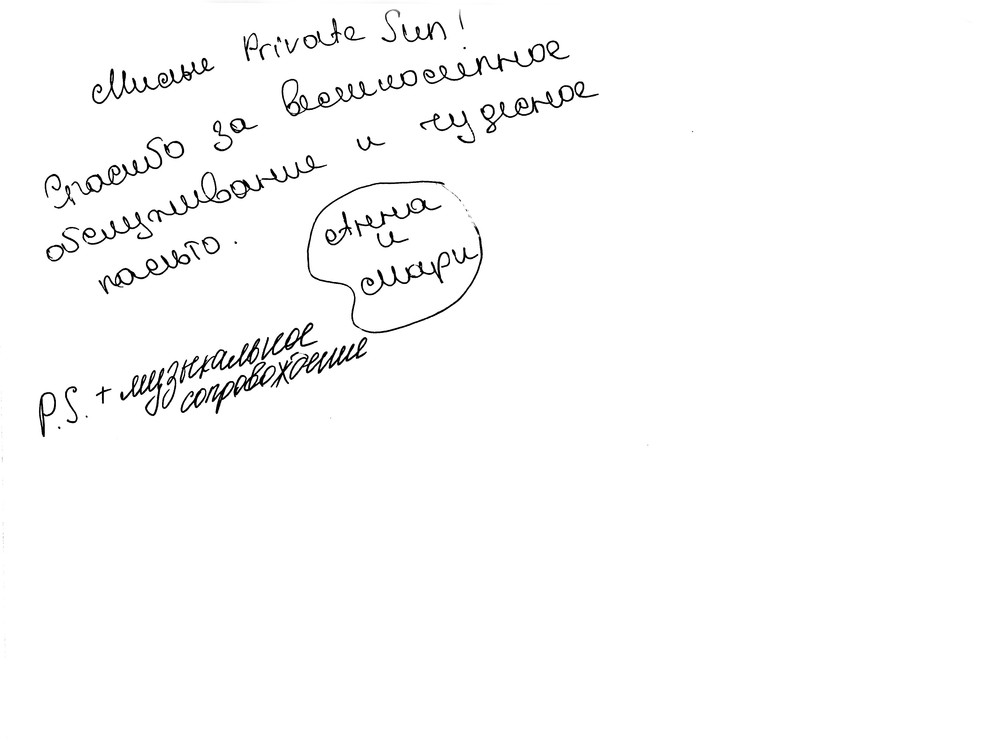 Милые Private Sun!
Спасибо за великолепное
обслуживание и чудесное
пальто.
Анна
и
Мари
P.S. + музыкальное
сопровождение